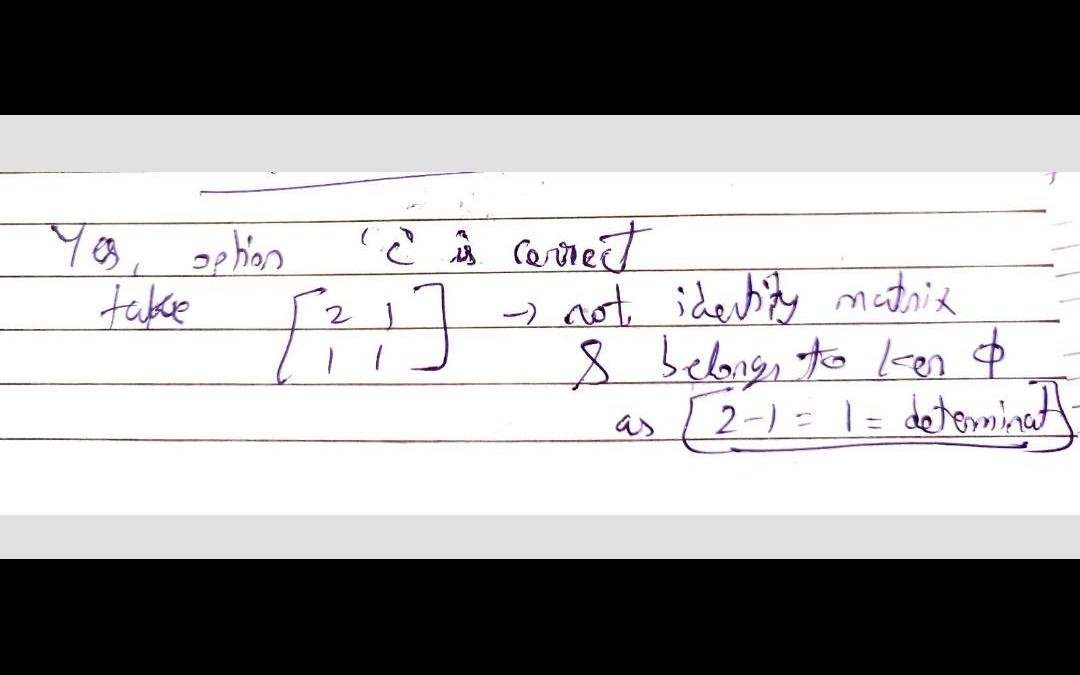 Yes, option 'c' is correct
take [2 1 → not identity matrix
1 1] & belongs to ker ϕ
as [2-1 = 1 = determinat]